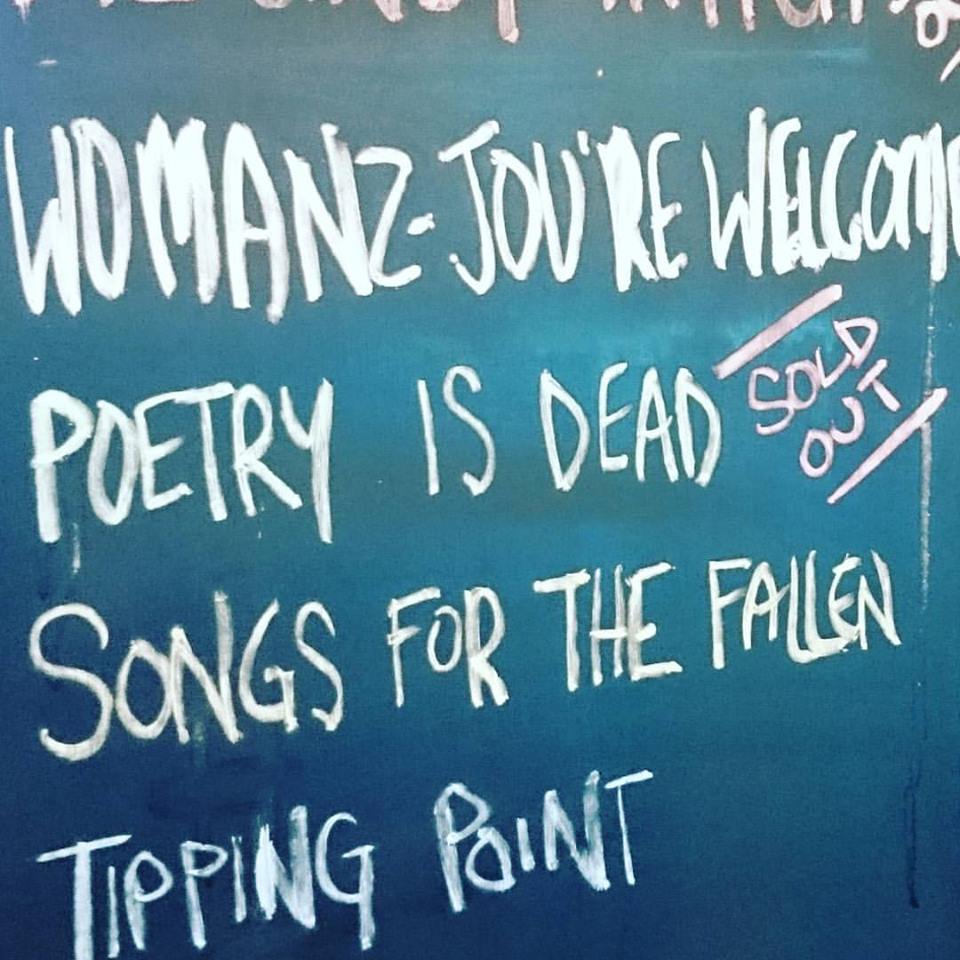 WOMANZ-JOU'RE WELCOME
POETRY IS DEAD
SOLD
OUT
SONGS FOR THE FALLEN
TIPPING POINT